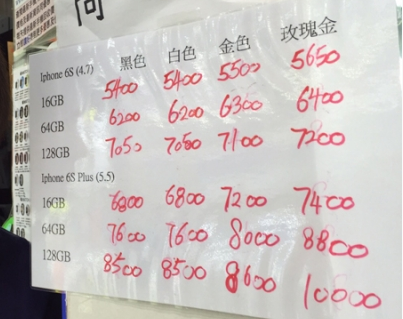 向
黑色 白色 金色 玫瑰金
Iphone 6S (4.7)
16GB 5400 5400 5500 5650
64GB 6200 6200 6300 6400
128GB 7050 7050 7100 7200
Iphone 6S Plus (5.5)
16GB 6800 6800 7200 7400
64GB 7600 7600 8000 8800
128GB 8500 8500 8600 10000